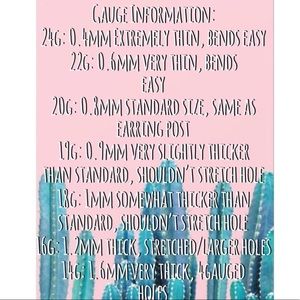 Gauge Information:
24g: 0.4mm Extremely thin, bends easy
22g: 0.6mm very thin, bends
easy
20g: 0.8mm standard size, same as
earring post
19g: 0.9mm very slightly thicker
than standard, shouldn't stretch hole
18g: 1mm somewhat thicker than
standard, shouldn't stretch hole
16g: 1.2mm thick, stretched/larger holes
14g: 1.6mm very thick, 4gauged
holes